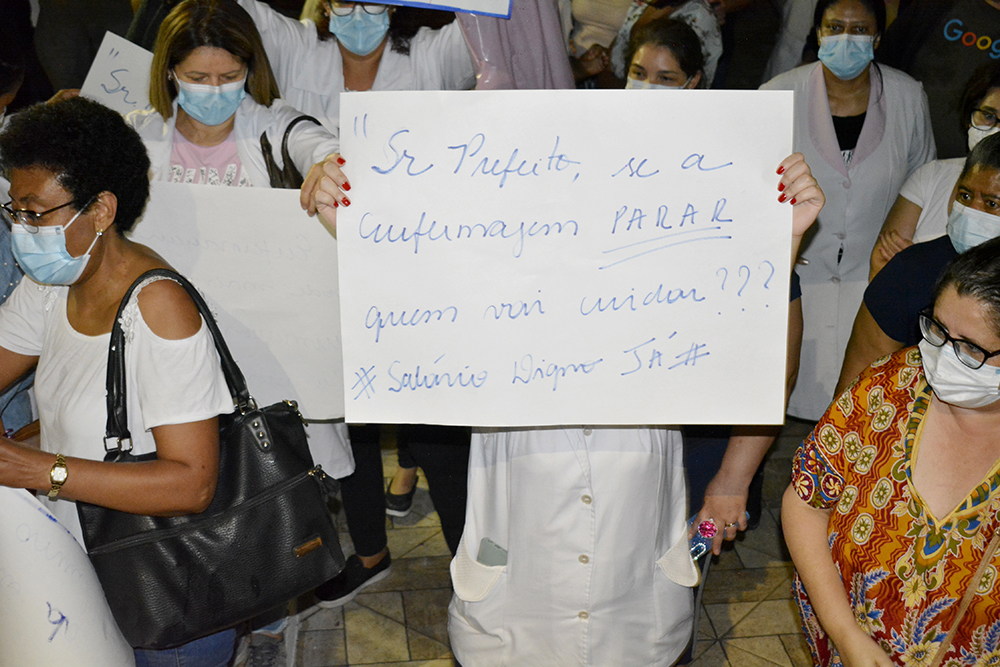 "Sr Prefeito, se a
enfermagem PARAR
quem vai cuidar???
#Salário Digno JÁ#
"Sr
Goog